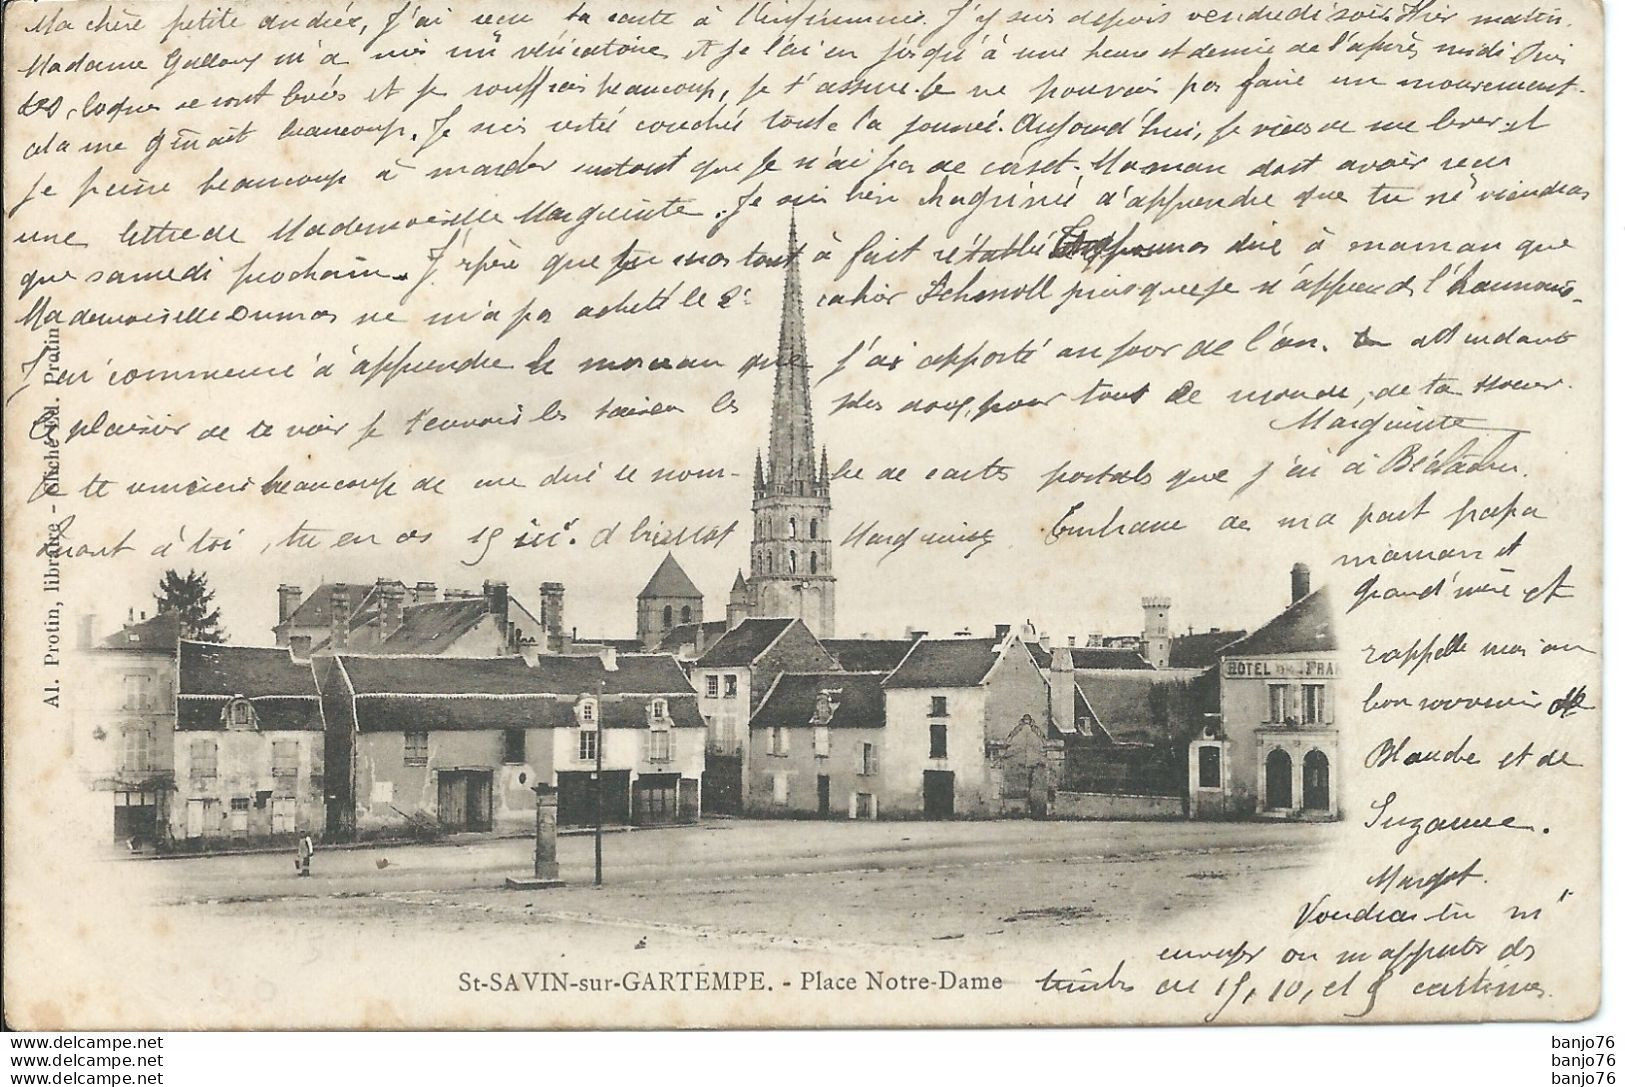 Ma chère petite Andrée, J'ai reçu ta carte à l'infirmerie. J'y suis depuis vendredi soir. Hier matin.
Madame Galloux m'a mis un vésicatoire et je l'ai eu jusqu'à une heure et demie de l'après midi Puis
cloques se sont levés et je souffrais beaucoup, je t'assure. Je ne pouvais pas faire un mouvement.
cela me gênait beaucoup. Je suis restée couchée toute la journée. Aujourd'hui, je viens de me lever et
je peine beaucoup à marcher surtout que je n'ai pas de corset. Maman doit avoir reçu
une lettre de Mademoiselle Marguerite. Je suis bien chagrinée d'apprendre que tu ne viendras
que samedi prochain. J'espère que tout à fait rétablie dire à maman que
Mademoiselle Dumas ne m'a pas acheté le 2e cahier Schmoll puisque je n'apprends l'harmonie.
J'ai commencé à apprendre le morceau que j'ai apporté au jour de l'an. attendant
le plaisir de te voir je t'envoie les baisers les plus doux, pour tout le monde, de ta sœur.
Marguerite
Je te remercie beaucoup de me dire le nombre de cartes postales que j'ai à
quant à toi, tu en as Marguerite Embrasse de ma part papa
maman et
grand'mère et
rappelle moi au
bon souvenir de
Blanche et de
Suzanne.
Margot.
Voudrais tu m'
envoyer ou m'apporter des
timbres de 15, 10, et 5 centimes.
Al. Protin, libraire - Cliché Ed. Protin
HOTEL DE FRAN
St-SAVIN-sur-GARTEMPE. - Place Notre-Dame
banjo76
banjo76
banjo76
www.delcampe.net
www.delcampe.net
www.delcampe.net